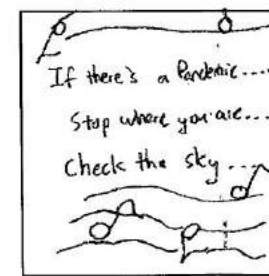 If there's a Pandemic....
Stop where you are...
Check the sky....